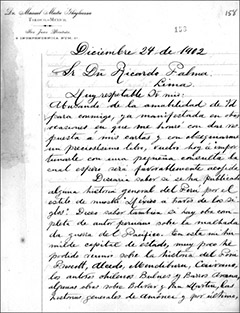 Dr. Manuel Mestre Ghigliazza
TABASCO-MÉXICO.
San Juan Bautista
INDEPENDENCIA NUM.
133
158
Diciembre 24 de 1902
Sr. Dn. Ricardo Palma
Lima.
Muy respetable Sr mio:
Abusando de la amabilidad de Ud
para conmigo, ya manifestada en oca-
ciones en que me honró con dar res-
puesta a mis cartas y con obsequiarme
un preciosísimo libro, vuelvo hoy á impor-
tunarle con una pequeña consulta la
cual espero será favorablemente acogida
Desearía saber si se ha publicado
alguna historia general del Perú por el
estilo de nuestra "México a través de los si-
glos". Deseo saber tambien si hay obra com-
pleta de autor peruano sobre la malhada-
da guerra del Pacífico. En esta mi hu-
milde capital de estado, muy poco he
podido reunir sobre la historia del Perú
Prescott, Alcedo, Mendiburu,
los autores chilenos Bulnes y Barros Arana,
algunas obras sobre Bolívar y San Martín, las
historias generales de América y, por último,